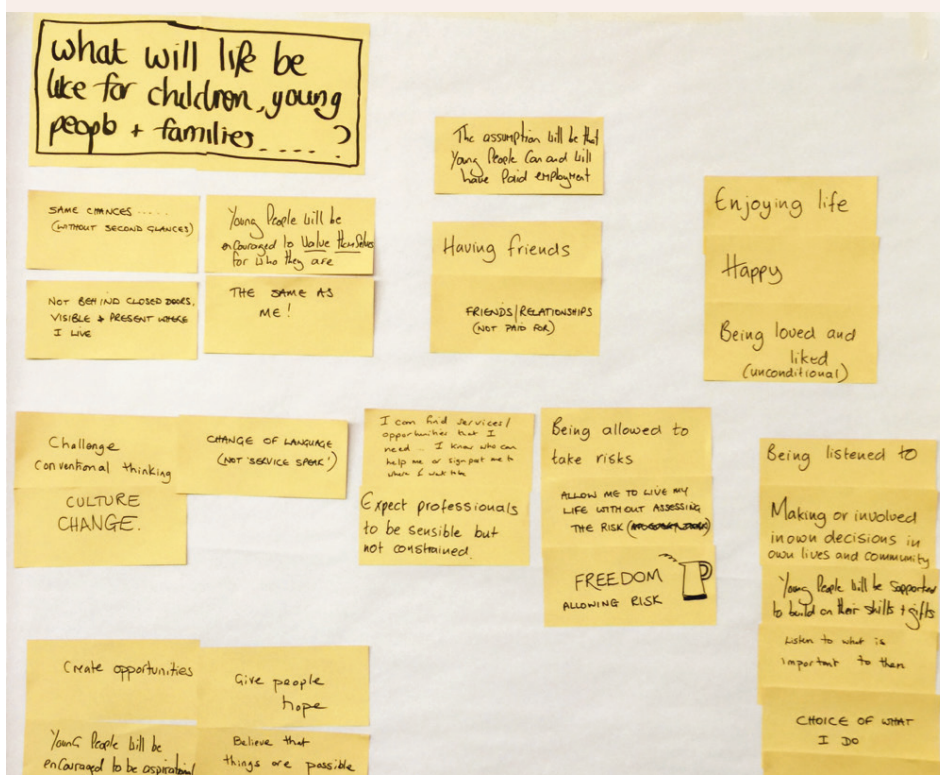 what will life be
like for children, young
people + families.....?
SAME CHANCES.....
(WITHOUT SECOND GLANCES)
Young People will be
encouraged to Value themselves
for who they are
NOT BEHIND CLOSED DOORS,
VISIBLE & PRESENT WHERE
I LIVE
THE SAME AS
ME!
The assumption will be that
Young People Can and will
have Paid employment
Having friends
FRIENDS/RELATIONSHIPS
(NOT PAID FOR)
Enjoying life
Happy
Being loved and
liked
(unconditional)
Challenge
conventional thinking
CHANGE OF LANGUAGE
(NOT 'SERVICE SPEAK')
CULTURE
CHANGE.
I can find services/
opportunities that I
need .. I know who can
help me or signpost me to
where I want to be
Expect professionals
to be sensible but
not constrained.
Being allowed to
take risks
ALLOW ME TO LIVE MY
LIFE WITHOUT ASSESSING
THE RISK
FREEDOM
ALLOWING RISK
Being listened to
Making or involved
in own decisions in
own lives and community
Young People will be supported
to build on their skills + gifts
Listen to what is
important to them
CHOICE OF WHAT
I DO
Create opportunities
Give people
hope
Young People will be
encouraged to be aspirational
Believe that
things are possible